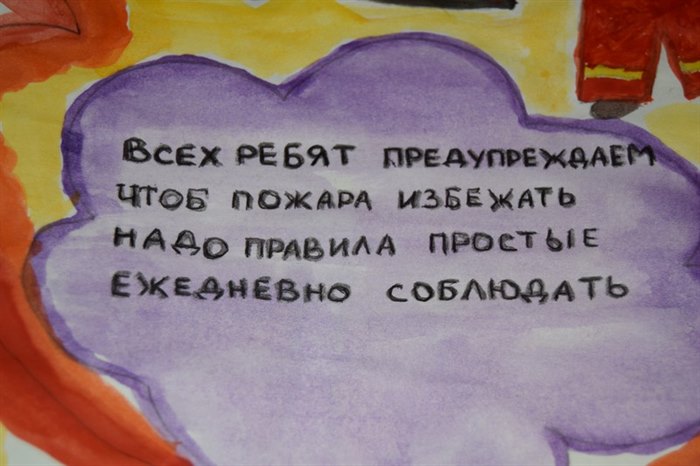 ВСЕХ РЕБЯТ ПРЕДУПРЕЖДАЕМ
ЧТОБ ПОЖАРА ИЗБЕЖАТЬ
НАДО ПРАВИЛА ПРОСТЫЕ
ЕЖЕДНЕВНО СОБЛЮДАТЬ